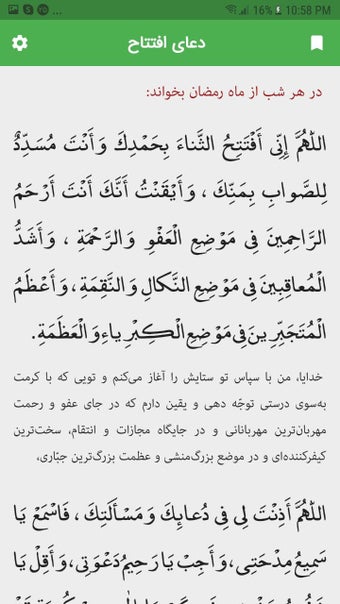 ... 16% 10:58 PM
دعای افتتاح
در هر شب از ماه رمضان بخواند:
اللّٰهُمَّ إِنِّى أَفْتَتِحُ الثَّناءَ بِحَمْدِكَ وَ أَنْتَ مُسَدِّدٌ
لِلصَّوابِ بِمَنِّكَ ، وَ أَيْقَنْتُ أَنَّكَ أَنْتَ أَرْحَمُ
الرَّاحِمِينَ فِى مَوْضِعِ الْعَفْوِ وَ الرَّحْمَةِ ، وَ أَشَدُّ
الْمُعاقِبِينَ فِى مَوْضِعِ النَّكالِ وَ النَّقِمَةِ ، وَ أَعْظَمُ
الْمُتَجَبِّرِينَ فِى مَوْضِعِ الْكِبْرِياءِ وَ الْعَظَمَةِ.
خدایا، من با سپاس تو ستایش را آغاز می‌کنم و تویی که با کرمت
به‌سوی درستی توجّه دهی و یقین دارم که در جای عفو و رحمت
مهربان‌ترین مهربانانی و در جایگاه مجازات و انتقام، سخت‌ترین
کیفرکننده‌ای و در موضع بزرگ‌منشی و عظمت بزرگ‌ترین جبّاری،
اللّٰهُمَّ أَذِنْتَ لِى فِى دُعائِكَ وَ مَسْأَلَتِكَ ، فَاسْمَعْ يَا
سَمِيعُ مِدْحَتِى، وَ أَجِبْ يَا رَحِيمُ دَعْوَتِى، وَ أَقِلْ يَا